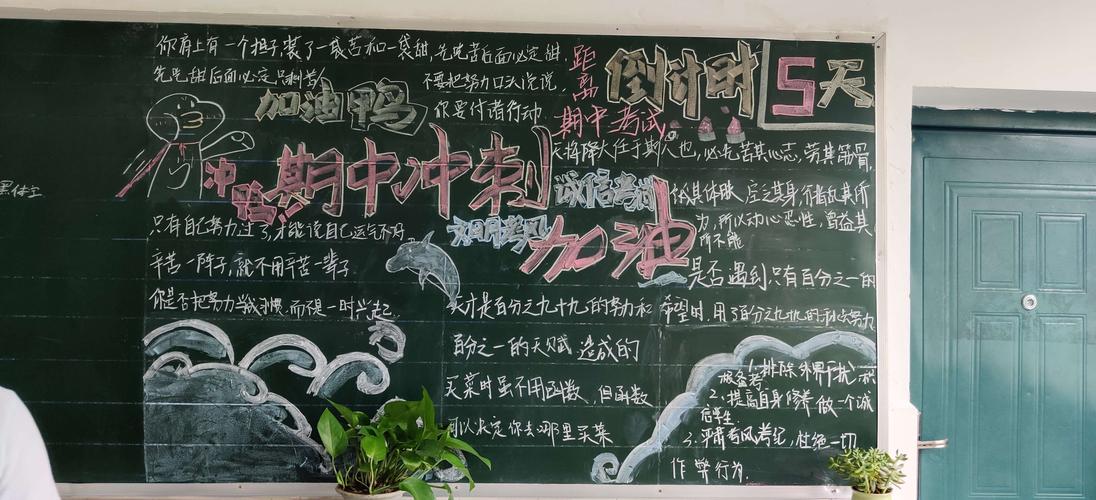 你肩上有一个担子,装了一袋苦和一袋甜,先吃苦后面必定甜,
先吃甜后面必定是苦
不要把努力口头说说,
你要付诸行动
加油鸭
冲鸭
期中冲刺
诚信考试
文明考风
加油
距离
期中考试
倒计时 5天
天将降大任于斯人也,必先苦其心志,劳其筋骨,
体肤,空乏其身,行拂乱其所
为,所以动心忍性,曾益其
所不能
只有自己努力过了,才能说自己运气不好.
辛苦一阵子,就不用辛苦一辈子
你是否把努力当成习惯,而不是一时兴起
天才是百分之九十九的努力和
百分之一的天赋 造成的
买菜时虽不用函数,但函数
可以决定你去哪里买菜
是否遇到只有百分之一的
希望时,用了百分之九十九的努力
1.排除外界干扰,积
极备考
2.提高自身修养,做一个诚
信学生
3.严肃考风考纪,杜绝一切
作弊行为.